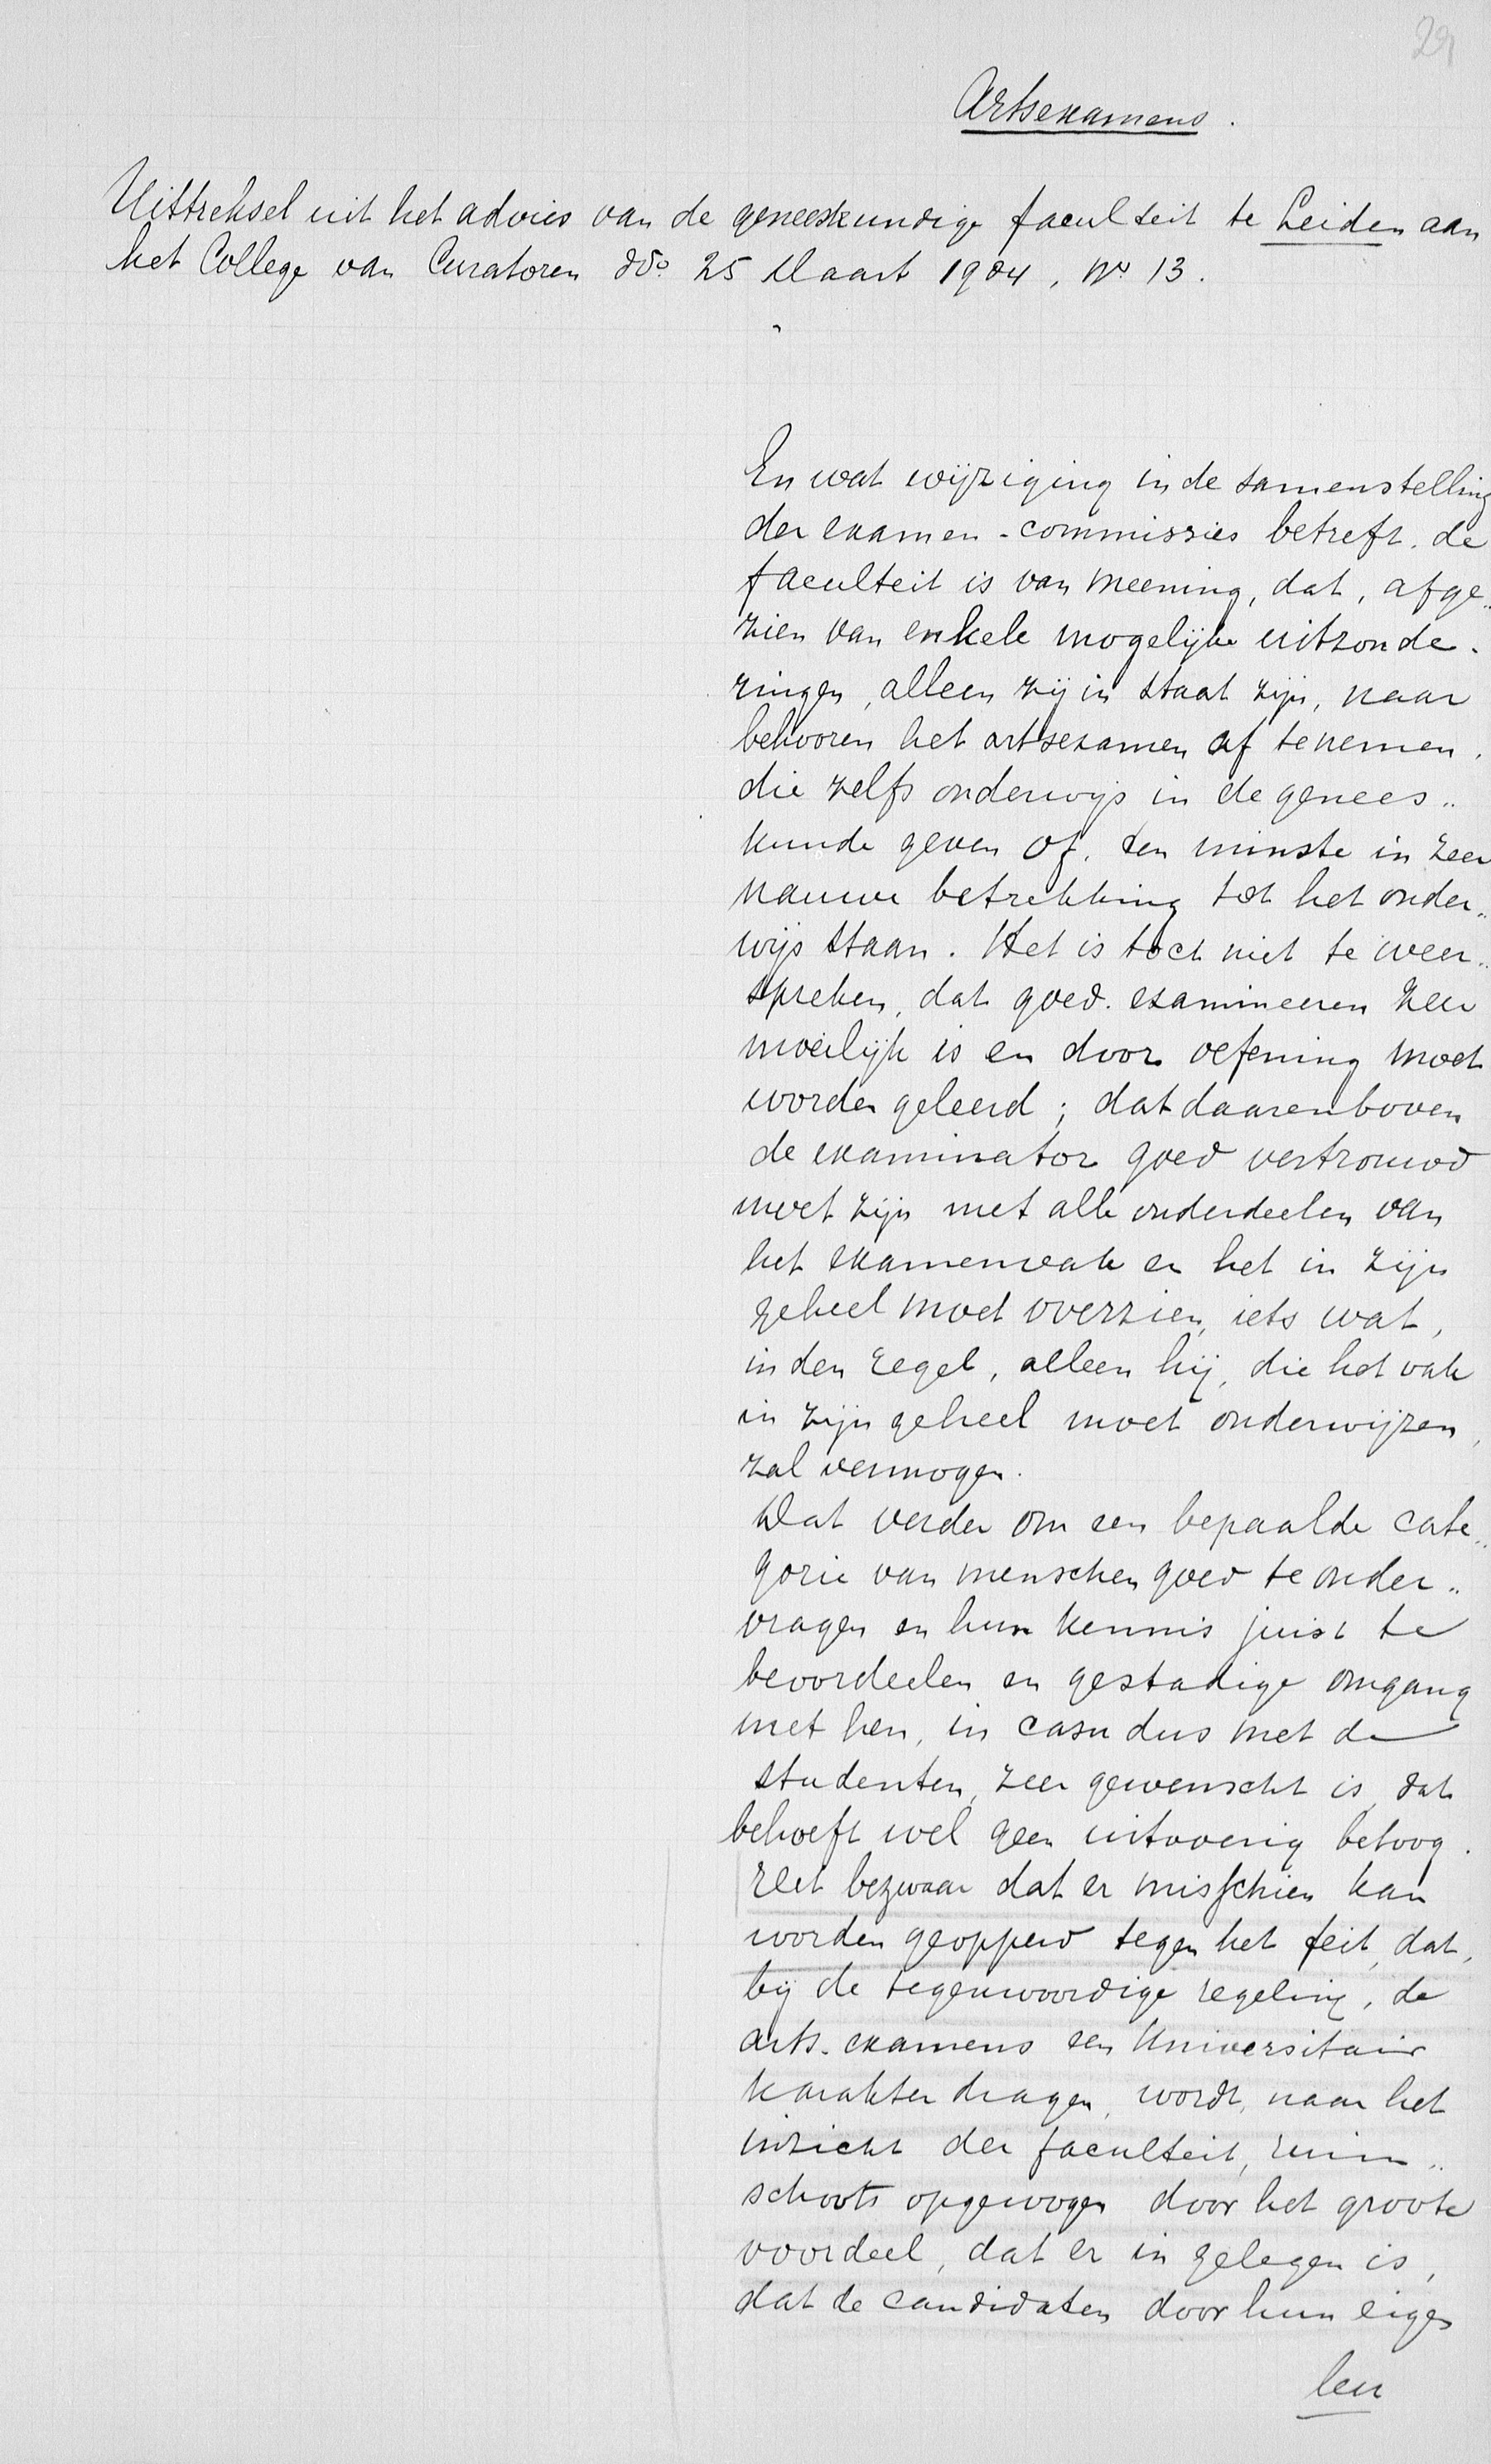 29
Artsexamens.
Uittreksel uit het advies van de geneeskundige faculteit te Leiden aan
het College van Curatoren ddo. 25 Maart 1904, No 13.
En wat wijziging in de samenstelling
der examen-commissies betreft. de
faculteit is van meening, dat, afge„
zien van enkele mogelijke uitzonde„
ringen, alleen zij in staat zijn, naar
behooren het artsexamen af te nemen,
die zelfs onderwijs in de genees„
kunde geven of, ten minste in zeer
nauwe betrekking tot het onder„
wijs staan. Het is toch niet te weer„
spreken, dat goed examineeren zeer
moeilijk is en door oefening moet
worden geleerd; dat daarenboven
de examinator goed vertrouwd
moet zijn met alle onderdeelen van
het examenvak en het in zijn
geheel moet overzien, iets wat,
in den regel, alleen hij, die het vak
in zijn geheel moet onderwijzen,
zal vermogen.
Dat verder om een bepaalde cate„
gorie van menschen goed te onder„
vragen en hun kennis juist te
beoordeelen en gestadige omgang
met hen, in casu dus met de
studenten, zeer gewenscht is, dat
behoeft wel geen uitvoerig betoog.
Het bezwaar dat er misschien kan
worden geopperd tegen het feit, dat,
bij de tegenwoordige regeling, de
arts-examens een Universitair
karakter dragen, wordt, naar het
inzicht der faculteit, ruim„
schoots opgewogen door het groote
voordeel, dat er in gelegen is,
dat de candidaten door hun eigen
leer